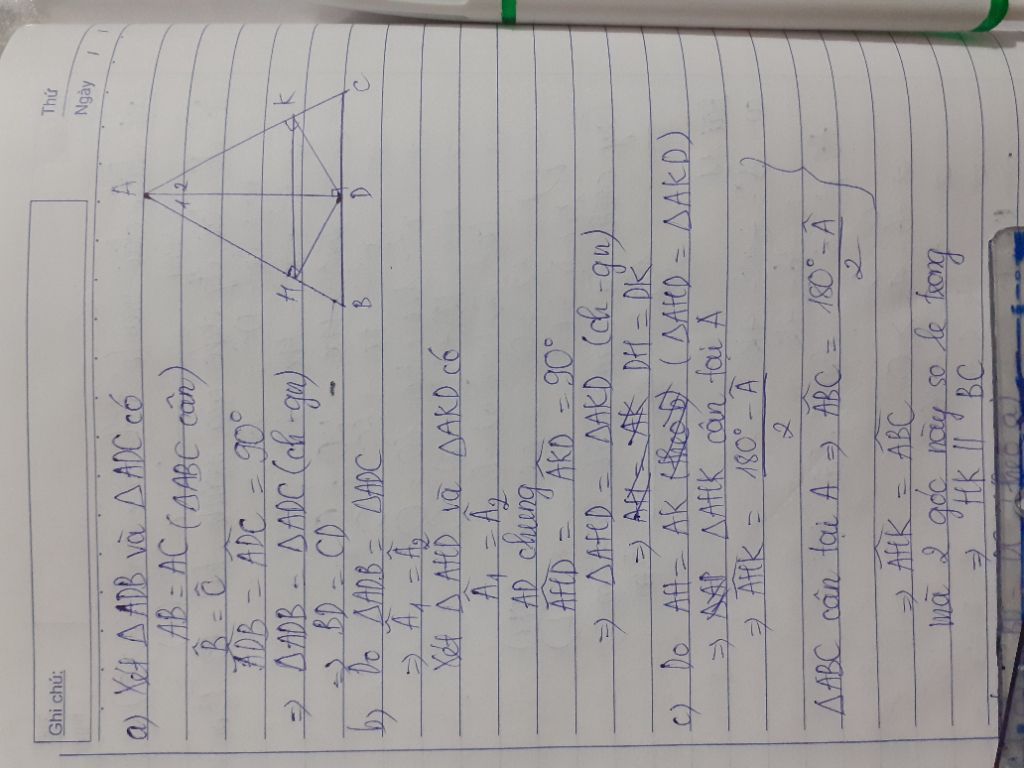 Thứ
Ngày
Ghi chú:
a) Xét △ADB và △ADC có
AB = AC (△ABC cân)
B̂ = Ĉ
ADB̂ = ADĈ = 90°
⇒ △ADB = △ADC (ch-gn)
⇒ BD = CD
A
1 2
H
K
B
D
C
b) Do △ADB = △ADC
⇒ Â1 = Â2
Xét △AHD và △AKD có
Â1 = Â2
AD chung
AHD̂ = AKD̂ = 90°
⇒ △AHD = △AKD (ch-gn)
⇒ AH = AK DH = DK
c) Do AH = AK (△AHD = △AKD)
⇒ △AHK cân tại A
⇒ AHK̂ = 180° - Â / 2
△ABC cân tại A ⇒ ABĈ = 180° - Â / 2
⇒ AHK̂ = ABĈ
mà 2 góc này so le trong
⇒ HK || BC